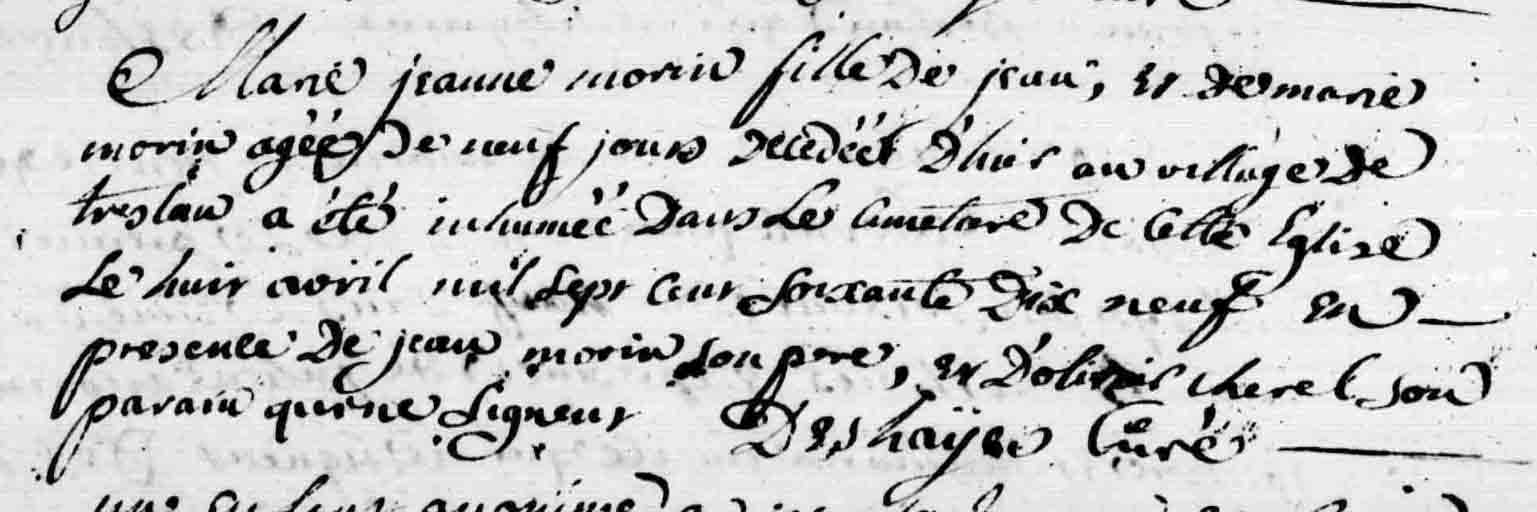 Marie jeanne morin fille De jean, et de marie
morin agéé De neuf jours decedéé D'hier au village de
treslan a été inhuméé Dans Le Cimetiere De Cette Eglise
Le huit avril mil sept cent soixante Dix neuf en
presence De jean morin son pere, et D'olivier cherel son
parain qui ne signent Deshayes Curé
une enfant anonime